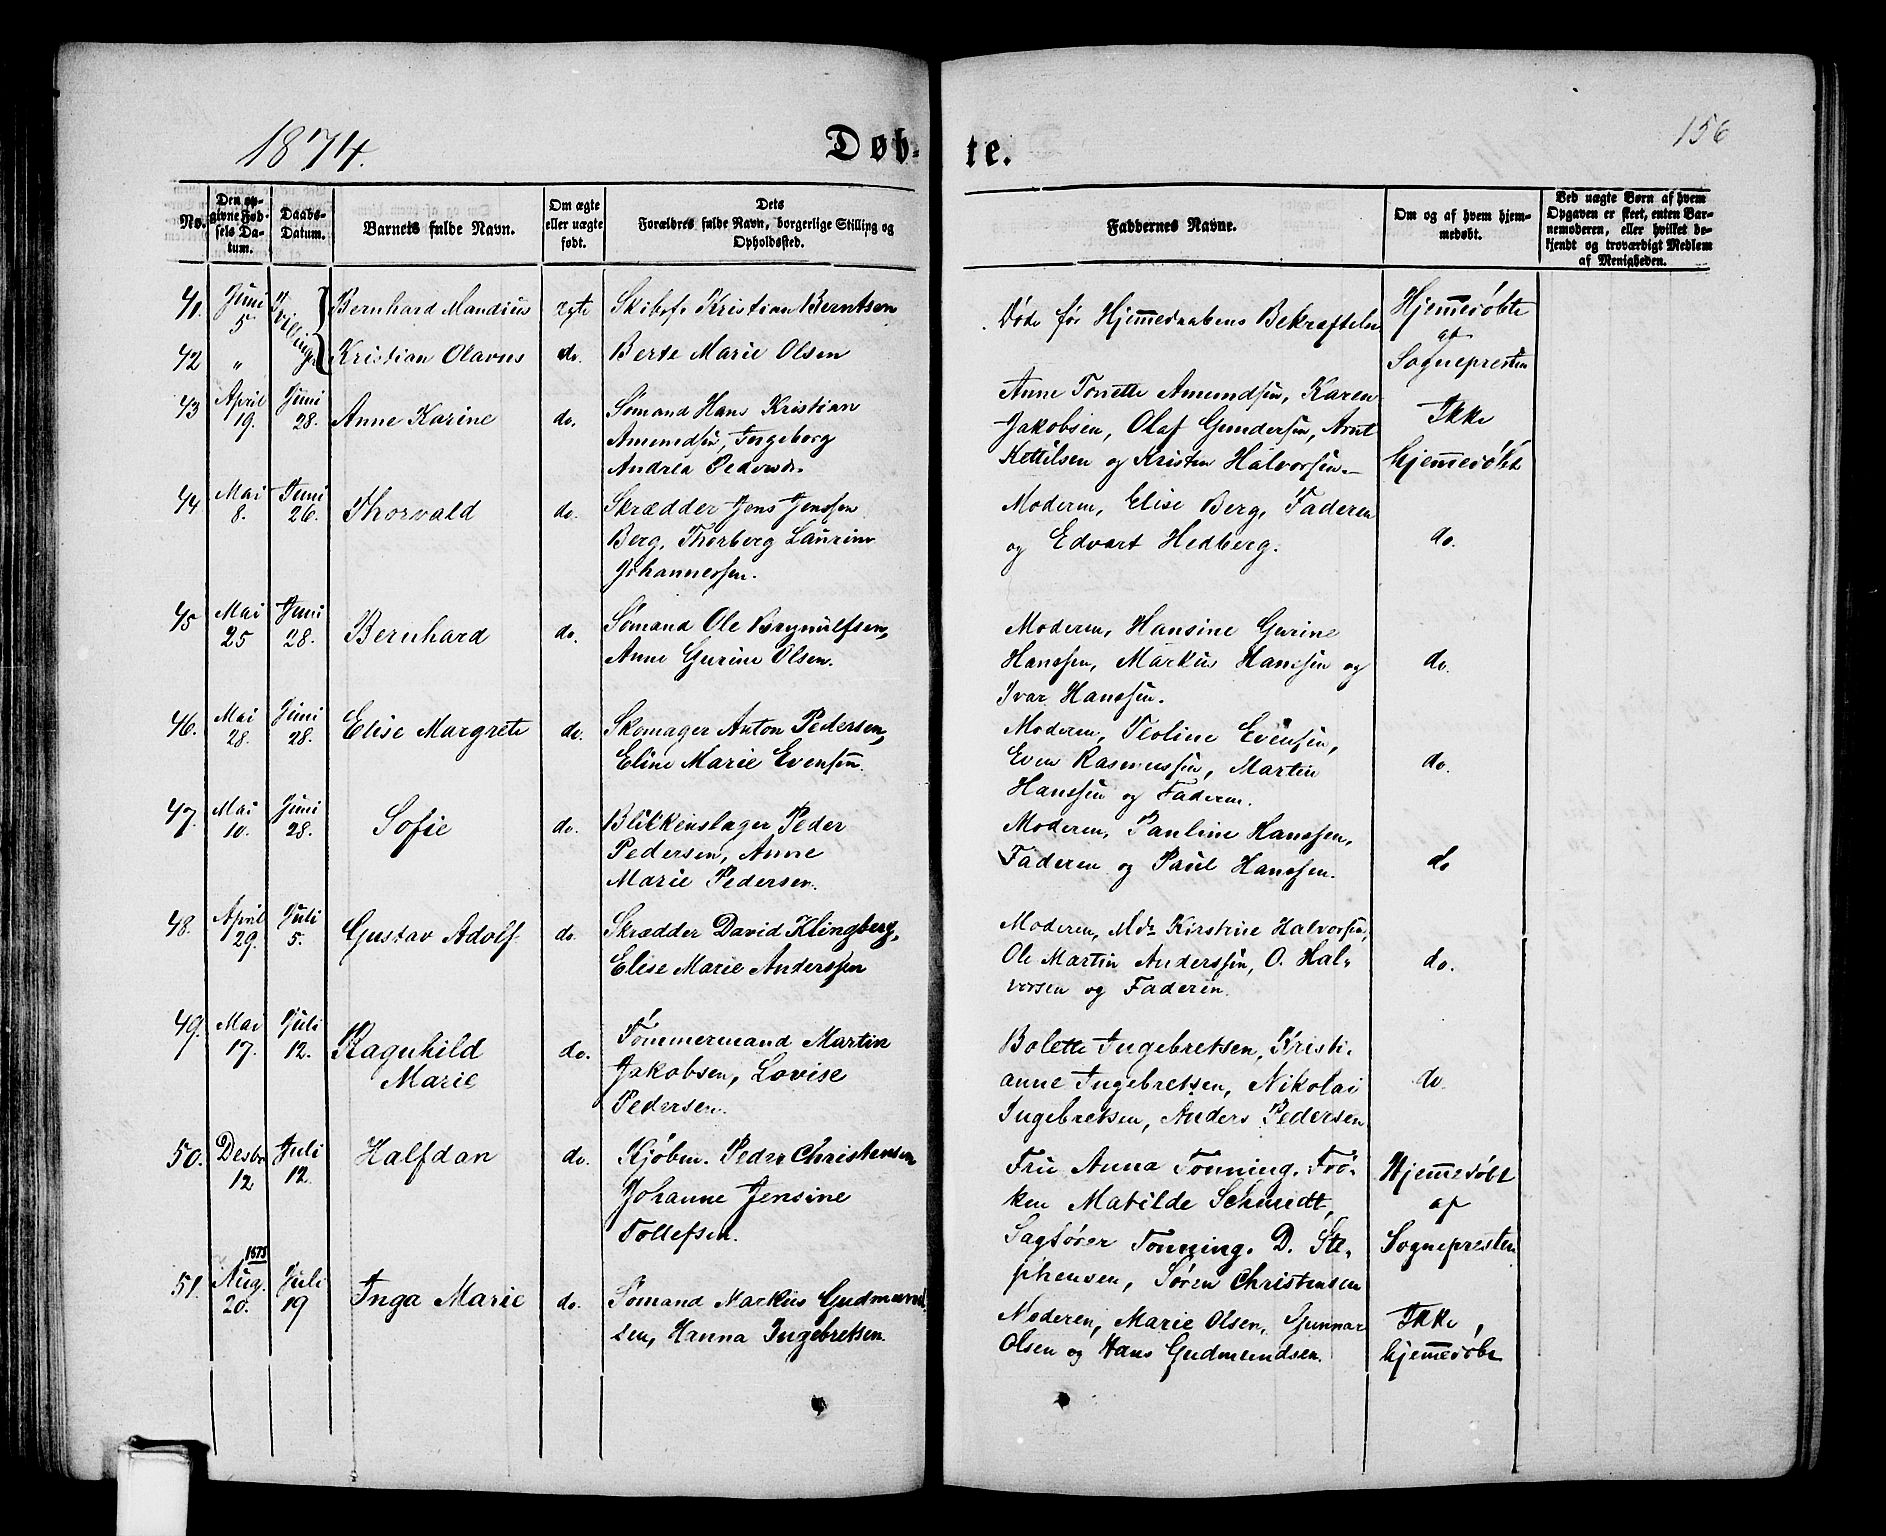 1874.
Døb-te.
156
No.
Den op-
givne Fød-
sels Da-
tum.
Daabs-
Datum.
Barnets fulde Navn.
Om ægte
eller uægte
født.
Dets
Forældres fulde Navn, borgerlige Stilling og
Opholdssted.
Faddernes Navne.
Om og af hvem hjem-
medøbt.
Ved uægte Børn af hvem
Opgaven er skeet, enten Bar-
nemoderen, eller hvilket be-
kjendt og troværdigt Medlem
af Menigheden.
41. Juni 5 Tvillinger Bernhard Mandius ægte Skibsf. Kristian Berntsen
42 " Kristian Olavus do. Berte Marie Olsen
Døde før Hjemmedaabens Bekræftelse
Hjemmedøbte
af
Sognepresten
43 April 19. Juni 28. Anne Karine do. Sømand Hans Kristian
Amundsen, Ingeborg
Andrea Pedersdr.
Anne Tonette Amundsen, Karen
Jakobsen, Olaf Gundersen, Arnt
Kettilsen og Kristen Halvorsen.
Ikke
hjemmedøbt
44 Mai 8. Juni 26. Thorvald do. Skrædder Jens Jenssen
Berg, Thorberg Laurine
Johannessen.
Moderen, Elise Berg, Faderen
og Edvart Hedberg.
do.
45 Mai 25 Juni 28. Bernhard do. Sømand Ole Brynulfsen,
Anne Gurine Olsen.
Moderen, Hansine Gurine
Hanssen, Markus Hanssen og
Ivar Hanssen.
do.
46. Mai 28. Juni 28. Elise Margrete do. Skomager Anton Pedersen,
Eline Marie Evensen.
Moderen, Teoline Evensen,
Even Rasmussen, Martin
Hanssen og Faderen.
do.
47. Mai 10. Juni 28. Sofie do. Blikkenslager Peder
Pedersen, Anne
Marie Pedersen.
Moderen, Pauline Hanssen,
Faderen og Paul Hanssen.
do
48. April 29. Juli 5. Gustav Adolf do. Skrædder David Klingberg,
Elise Marie Anderssen
Moderen, Md. Kirstine Halvorsen,
Ole Martin Anderssen, O. Hal-
vorsen og Faderen.
do.
49. Mai 17. Juli 12. Ragnhild
Marie do. Tømmermand Martin
Jakobsen, Lovise
Pedersen.
Bolette Ingebretsen, Kristi-
anne Ingebretsen, Nikolai
Ingebretsen, Anders Pedersen
do.
50. Desbr 12 1873 Juli 12. Halfdan do. Kjøbm. Peder Christensen
Johanne Jensine
Tollefsen.
Fru Anna Tonning. Frø-
ken Matilde Schmidt,
Sagfører Tonning. D. Ste-
phensen, Søren Christensen
Hjemmedøbt
af
Sognepresten
51. Aug. 20. Juli 19 Inga Marie do. Sømand Markus Gudmund-
sen, Hanna Ingebretsen.
Moderen, Marie Olsen, Gunnar
Olsen og Hans Gudmundsen.
Ikke
hjemmedøbt